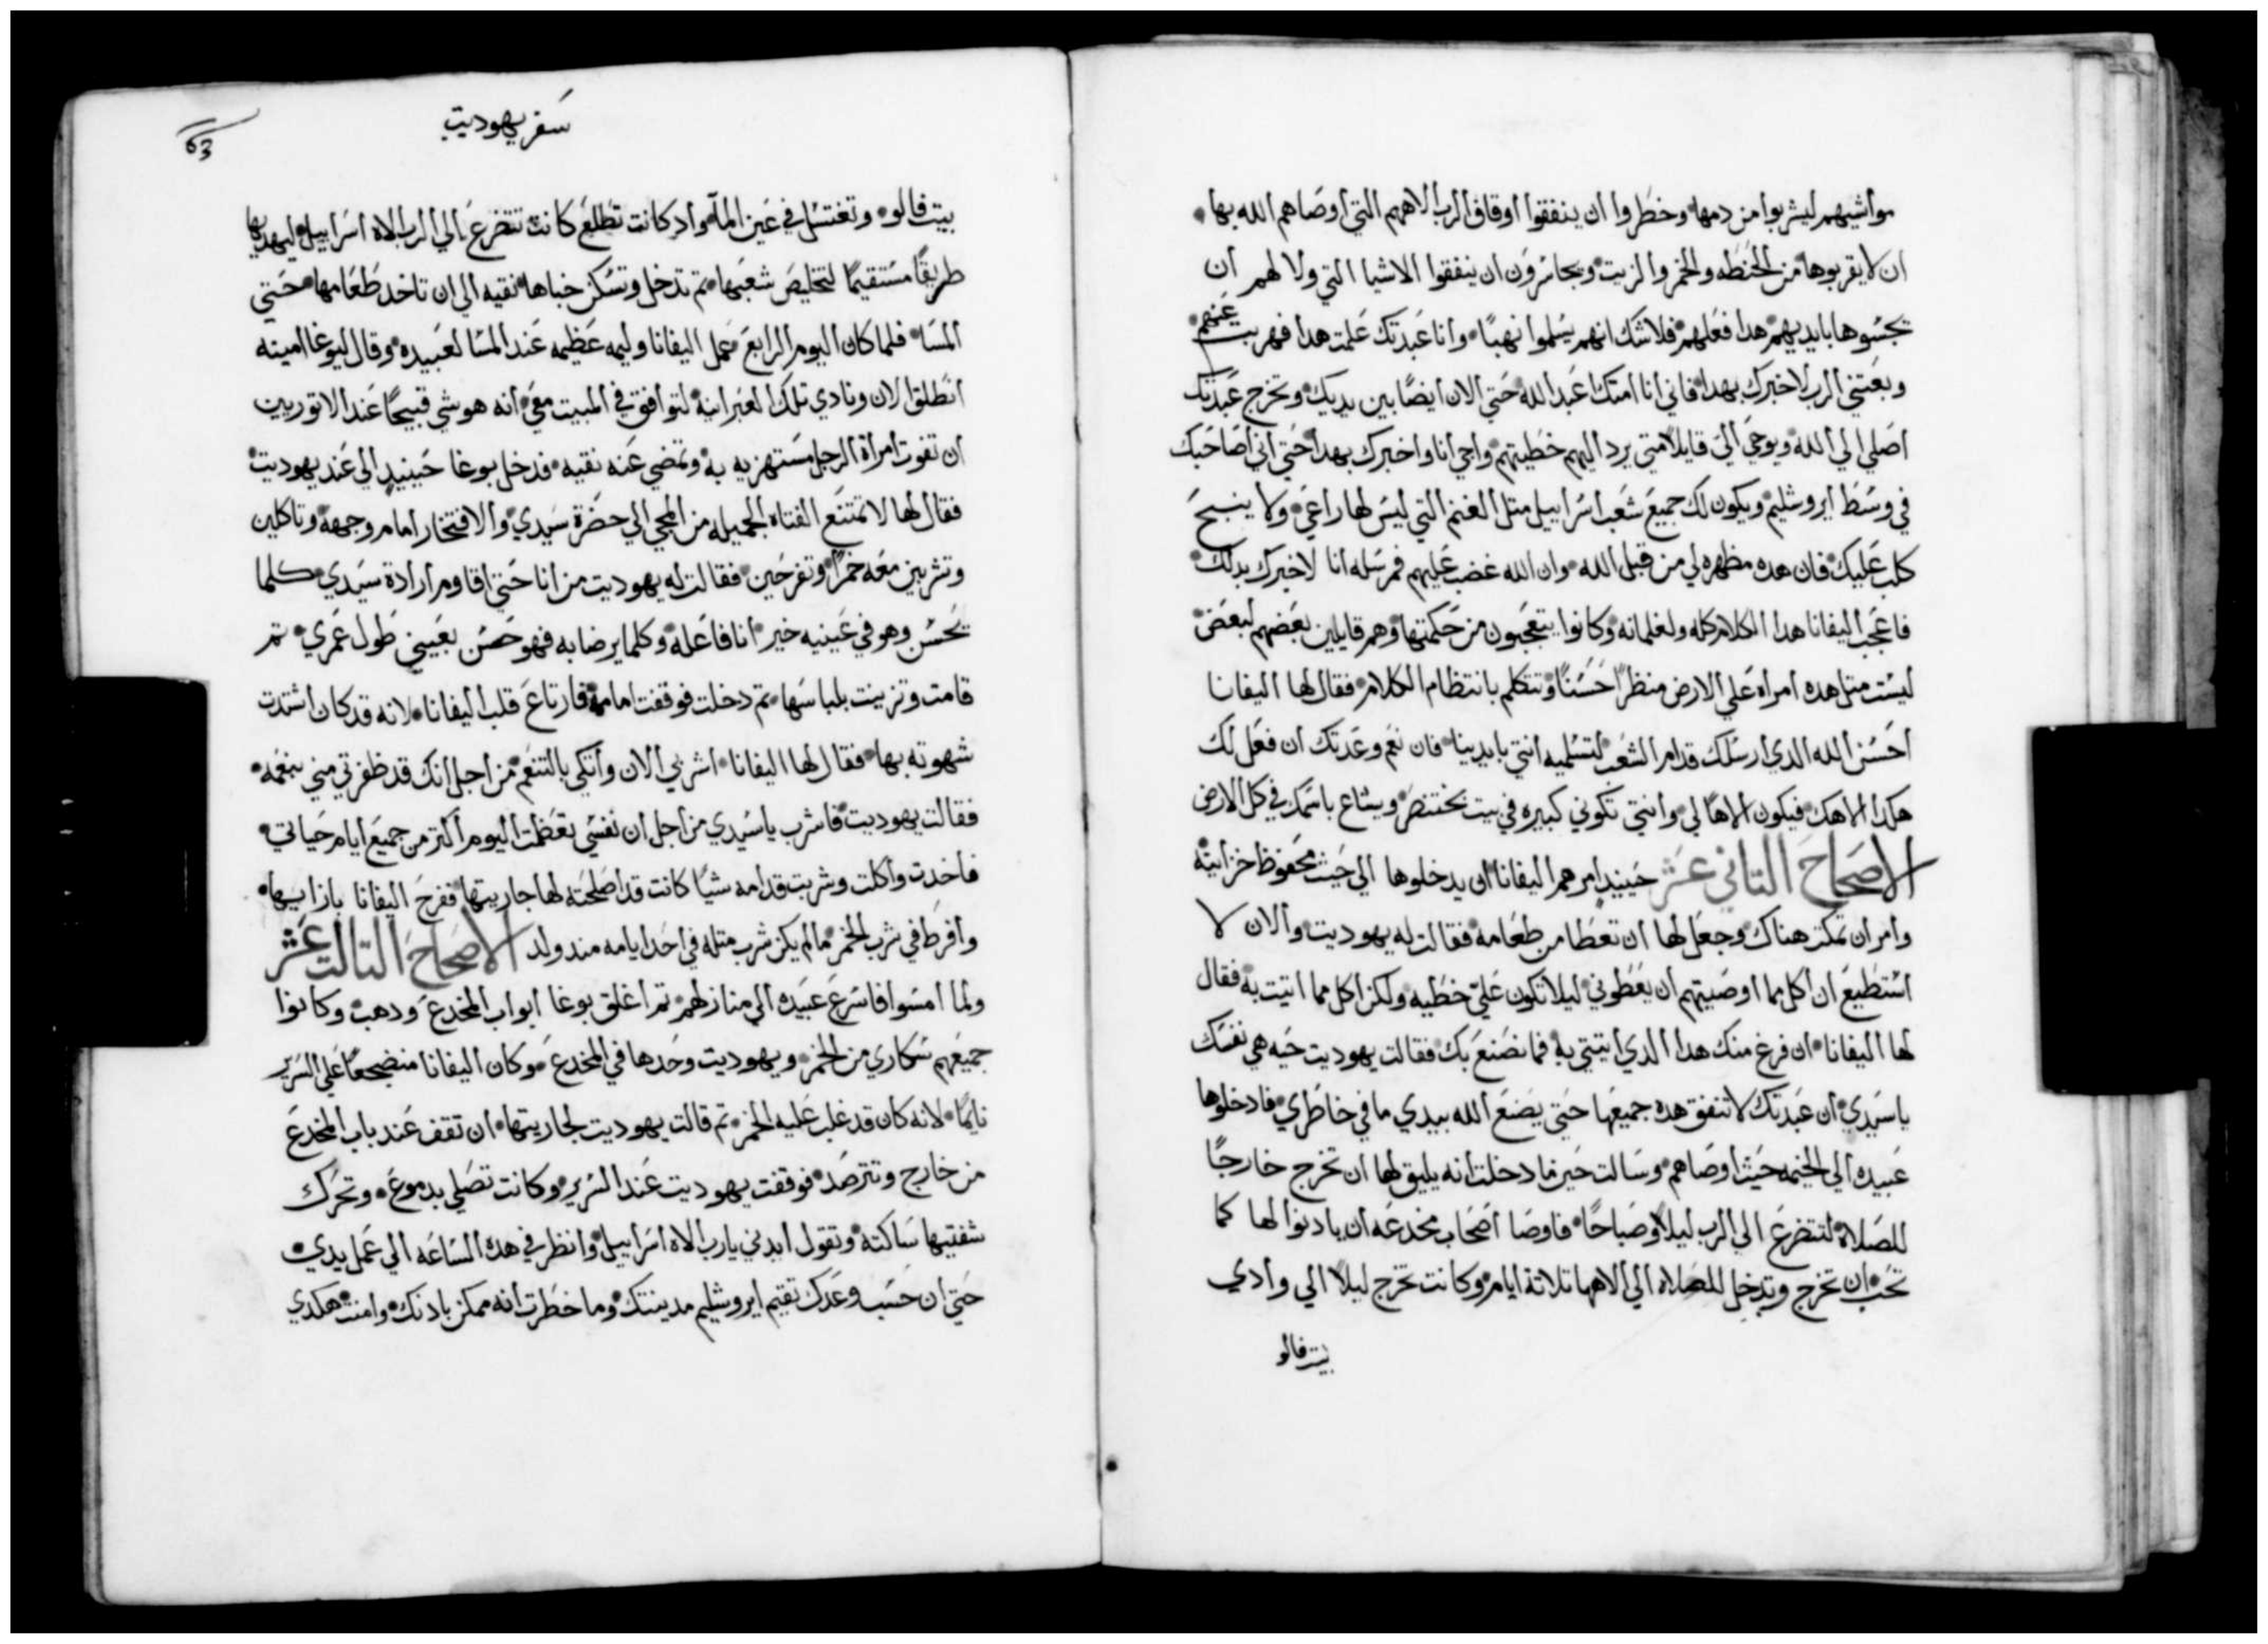 مواشيهم ليشربوا من دمها وخطروا ان ينفقوا اوقاف الرب الاههم التي اوصاهم الله بها
ان لا يقربوها من الحنطه والخمر والزيت ويجاسرون ان ينفقوا الاشيا التي ولا لهم ان
يجسوها بايديهم هدا فعلهم فلا شك انهم يسلموا نهبًا وانا عبدتك علمت هدا فهربت عنهم
وبعتني الرب لاخبرك بهدا فاني انا امتك اعبد الله حتي الان ايضًا بين يديك وتخرج عبدتك
اصلي الي الله ويوحي الي قايلًا متي يرد اليهم خطيتهم واجي انا واخبرك بهدا حتي اني اصاحبك
في وسط ايروشليم ويكون لك جميع شعب اسراييل متل الغنم التي ليس لها راعي ولا ينبح
كلب عليك فان هده مظهره لي من قبل الله وان الله غضب عليهم فمرسله انا لاخبرك بدلك
فاعجب اليفانا هدا الكلام كله ولغلمانه وكانوا يتعجبون من حكمتها وهم قايلين بعضهم لبعض
ليست متل هده امراه علي الارض منظرًا حسنًا وتتكلم بانتظام الكلام فقال لها اليفانا
احسن الله الدي ارسلك قدام الشعب لتسلميه انتي بايدينا فان نعم وعدتك ان فعل لك
هكدا الاهك فيكون الاهًا لي وانتي تكوني كبيره في بيت بختنصر ويشاع باسمك في كل الارض
الاصحاح التاني عشر حينيدٍ امرهم اليفانا ان يدخلوها الي حيث محفوظ خزاينه
وامر ان تمكت هناك وجعل لها ان تعطا من طعامه فقالت له يهوديت والان لا
استطيع ان اكل مما اوصيتهم ان يعطوني ليلا تكون علي خطيه ولكن اكل مما اتيت به فقال
لها اليفانا ان فرغ منك هدا الدي اتيتي به فما نصنع بك فقالت يهوديت حيه هي نفسك
ياسيدي ان عبدتك لا تنفق هده جميعها حتي يصنع الله بيدي ما في خاطري فادخلوها
عبيده الي الخيمه حيث اوصاهم وسالت حين ما دخلت انه يليق لها ان تخرج خارجًا
للصلاه لتتضرع الي الرب ليلًا وصباحًا فاوصا اصحاب مخدعه ان يادنوا لها كما
تحب ان تخرج وتدخل للصلاه الي الاهها تلاتة ايام وكانت تخرج ليلًا الي وادي
بيت فالو
سفر يهوديت
63
بيت فالو وتغتسل في عين المآ واد كانت تطلع كانت تتضرع الي الرب الاه اسراييل ليهديها
طريقًا مستقيمًا لتخليص شعبها تم تدخل وتسكن خباها نقيه الي ان تاخد طعامها حتي
المسا فلما كان اليوم الرابع عمل اليفانا وليمه عظيمه عند المسا لعبيده وقال لبوغا امينه
انطلق الان ونادي تلك العبرانيه لتوافق في المبيت معي انه هو شي قبيحًا عند الاتوريين
ان تفوت امراة الرجل مستهزيه به وتمضي عنه نقيه فدخل بوغا حينيدٍ الي عند يهوديت
فقال لها لا تمتنع الفتاه الجميله من المجي الي حضرة سيدي والافتخار امام وجهه وتاكلين
وتشربين معه خمرًا وتفرحين فقالت له يهوديت من انا حتي اقاوم ارادة سيدي كلما
يحسن وهو في عينيه خير انا فاعله وكلما يرضا به فهو حسن بعيني طول عمري تم
قامت وتزينت بلباسها تم دخلت فوقفت امامه فارتاع قلب اليفانا لانه قد كان اشتدت
شهوته بها فقال لها اليفانا اشربي الان واتكي بالتنعم من اجل انك قد ظفرتي مني بنعمه
فقالت يهوديت فاشرب ياسيدي من اجل ان نفسي تعظمت اليوم اكتر من جميع ايام حياتي
فاخدت واكلت وشربت قدامه شيًا كانت قد اصلحته لها جاريتها ففرح اليفانا بازايها
وافرط في شرب الخمر مالم يكن شرب متله في احد ايامه مند ولد الاصحاح التالت عشر
ولما امسوا فاسرع عبيده الي منازلهم تم اغلق بوغا ابواب المخدع ودهب وكانوا
جميعهم سكاري من الخمر ويهوديت وحدها في المخدع وكان اليفانا منضجعًا علي السرير
نايمًا لانه كان قد غلب عليه الخمر تم قالت يهوديت لجاريتها ان تقف عند باب المخدع
من خارج وتترصد فوقفت يهوديت عند السرير وكانت تصلي بدموع وتحرك
شفتيها ساكته وتقول ايدني يارب الاه اسراييل وانظر في هده الساعه الي عمل يدي
حتي ان حسب وعدك تقيم ايروشليم مدينتك وما خطرت انه ممكن بادنك وامنت هكدي